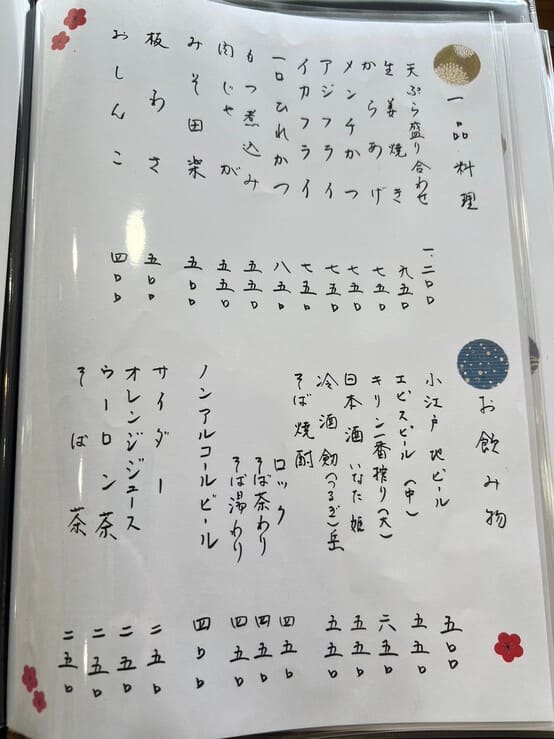 一品料理
天ぷら盛り合わせ 一、二〇〇
生姜焼き 九五〇
からあげ 七五〇
メンチかつ 七五〇
アジフライ 七五〇
イカフライ 七五〇
一口ひれかつ 八五〇
もつ煮込み 五五〇
肉じゃが 五五〇
みそ田楽 五〇〇
板わさ 五〇〇
おしんこ 四〇〇
お飲み物
小江戸地ビール 五〇〇
エビスビール(中) 五五〇
キリン一番搾り(大) 六五〇
日本酒 いなた姫 五五〇
冷酒 剱(つるぎ)岳 五五〇
そば焼酎
ロック 四五〇
そば茶わり 四五〇
そば湯わり 四五〇
ノンアルコールビール 四〇〇
サイダー 二五〇
オレンジジュース 二五〇
ウーロン茶 二五〇
そば茶 二五〇